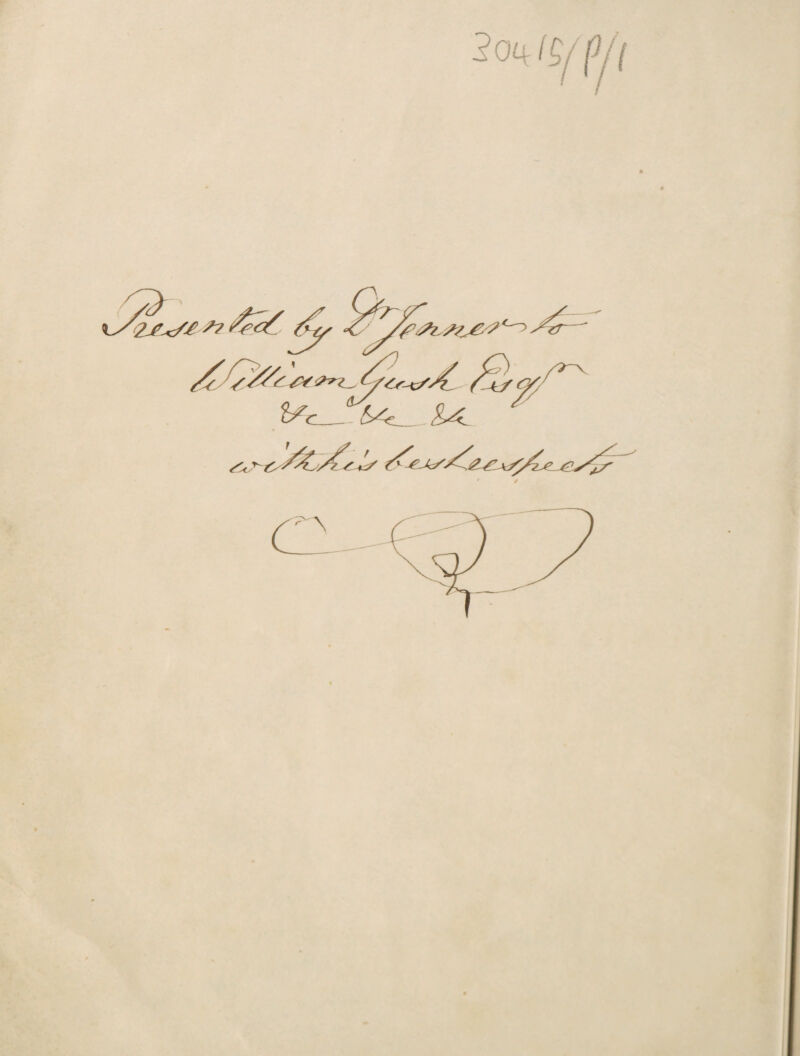 30415/P/1
Presented by Dr Jenner to
William Gush Esqr
&c &c &c
with his best respects